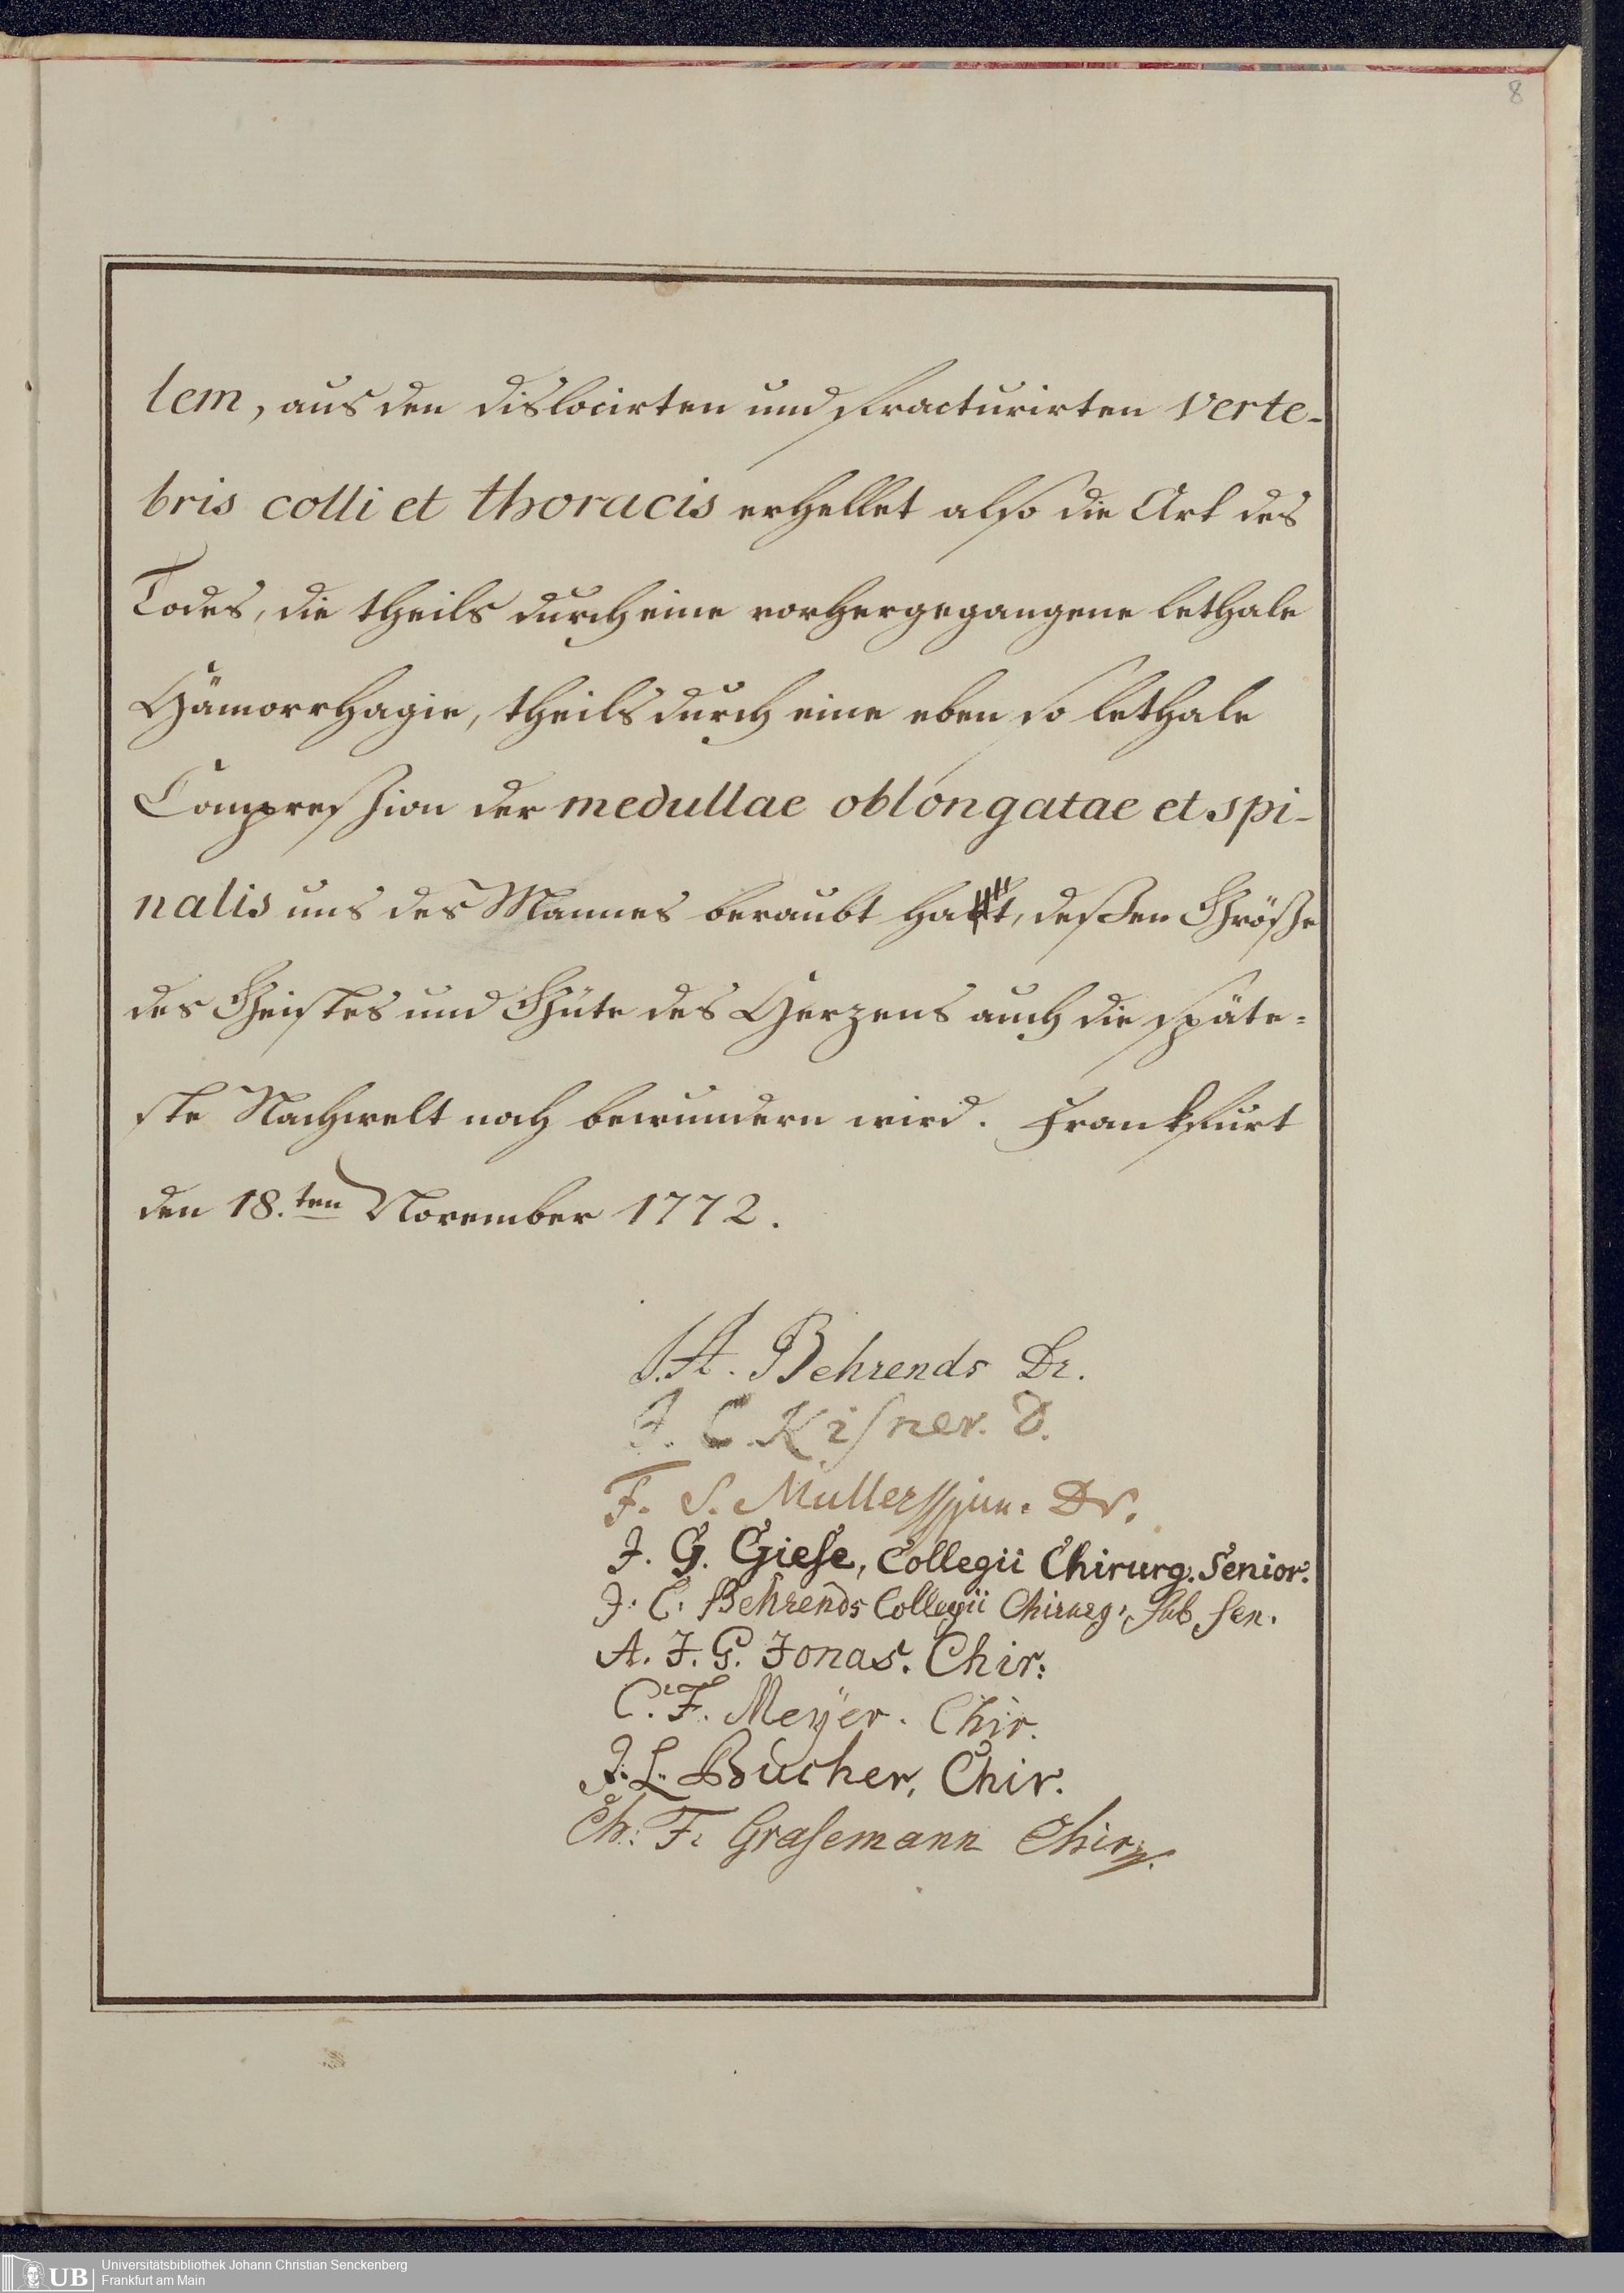 8
lem, aus den dislocirten und fracturirten verte-
bris colli et thoracis erhellet also die Art des
Todes, die theils durch eine vorhergegangene lethale
Hämorrhagie, theils durch eine eben so lethale
Compression der medullae oblongatae et spi-
nalis uns des Mannes beraubt hat, dessen Größe
des Geistes und Güte des Herzens auch die späte=
ste Nachwelt noch bewundern wird. Frankfurt
den 18.ten November 1772.
J. A. Behrends Dr.
J. C. Kisner. D.
F. S. Muller jun. Dr.
J. G. Giese, Collegii Chirurg. Senior.
J. C. Behrends Collegii Chirurg. Sub Sen.
A. J. G. Jonas. Chir.
C. F. Meyer. Chir.
J. L. Bucher, Chir.
Ch. F. Grasemann Chir.
UB Universitätsbibliothek Johann Christian Senckenberg
Frankfurt am Main